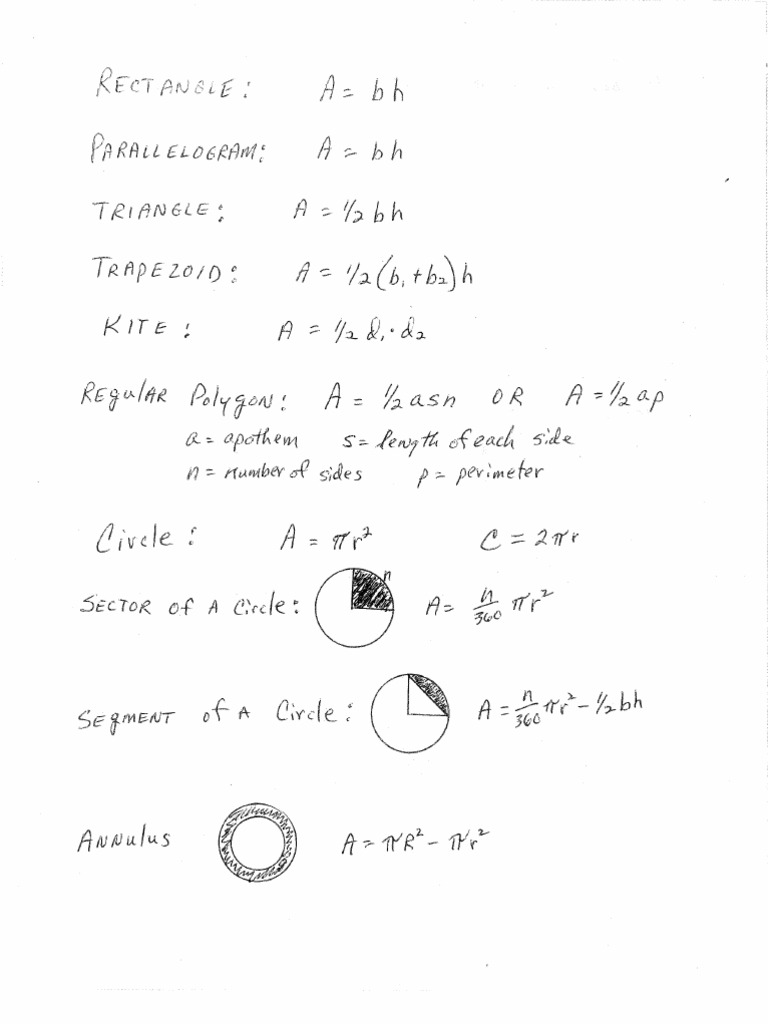 RECTANGLE: A = bh
PARALLELOGRAM: A = bh
TRIANGLE: A = 1/2 bh
TRAPEZOID: A = 1/2 (b₁ + b₂) h
KITE: A = 1/2 d₁ · d₂
REgulAR Polygon: A = 1/2 asn OR A = 1/2 ap
a = apothem s = length of each side
n = number of sides p = perimeter
Circle: A = πr² C = 2πr
n
SECTOR of A Circle: A = n/360 πr²
SEgMENT of A Circle: A = n/360 πr² - 1/2 bh
ANNulus A = πR² - πr²